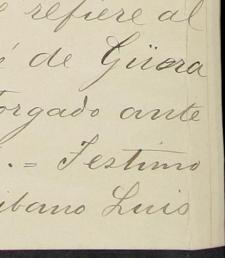 e refiere al
é de Güera
orgado ante
. = Testimo
ibano Luis